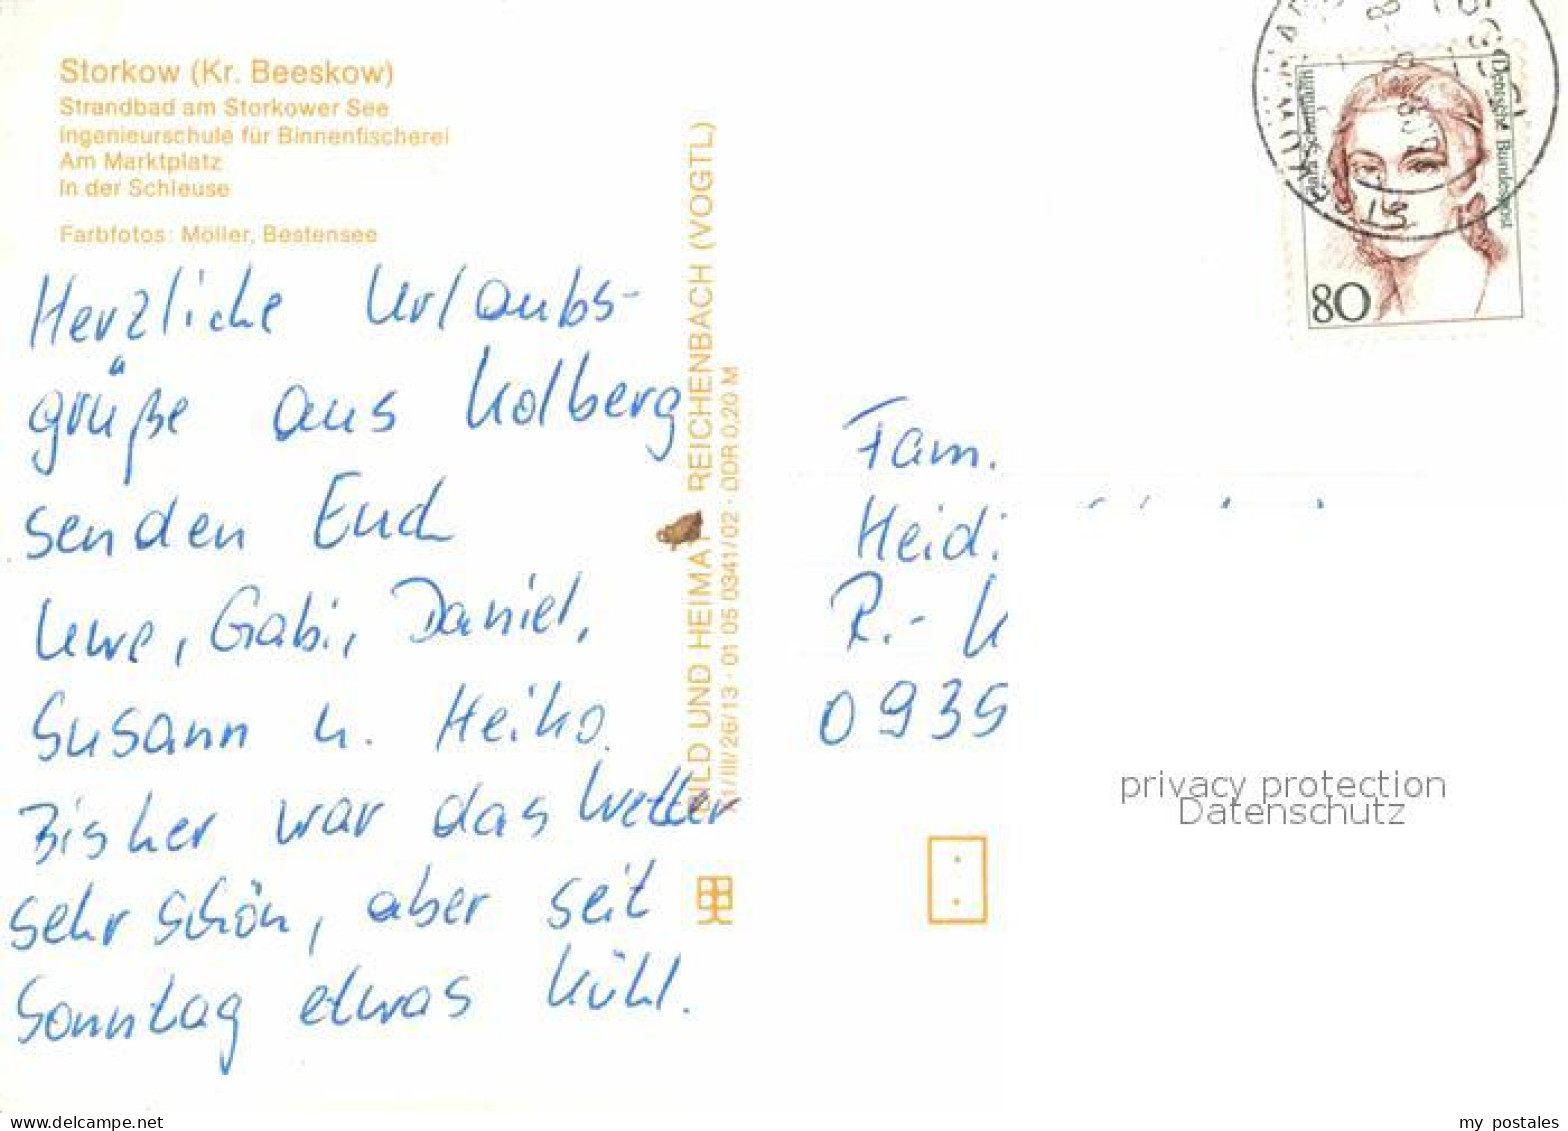 Storkow (Kr. Beeskow)
Strandbad am Storkower See
Ingenieurschule für Binnenfischerei
Am Marktplatz
In der Schleuse
Farbfotos: Möller, Bestensee
Herzliche Urlaubs-
grüße aus Kolberg
senden Euch
Uwe, Gabi, Daniel,
Susann u. Heiko.
Bisher war das Wetter
sehr schön, aber seit
Sonntag etwas kühl.
BILD UND HEIMAT REICHENBACH (VOGTL)
III/26/13 · 01 05 0341/02 · DDR 0,20 M
Deutsche Bundespost
Clara Schumann
80
Fam.
Heidi
R.-
0939
privacy protection
Datenschutz
my postales